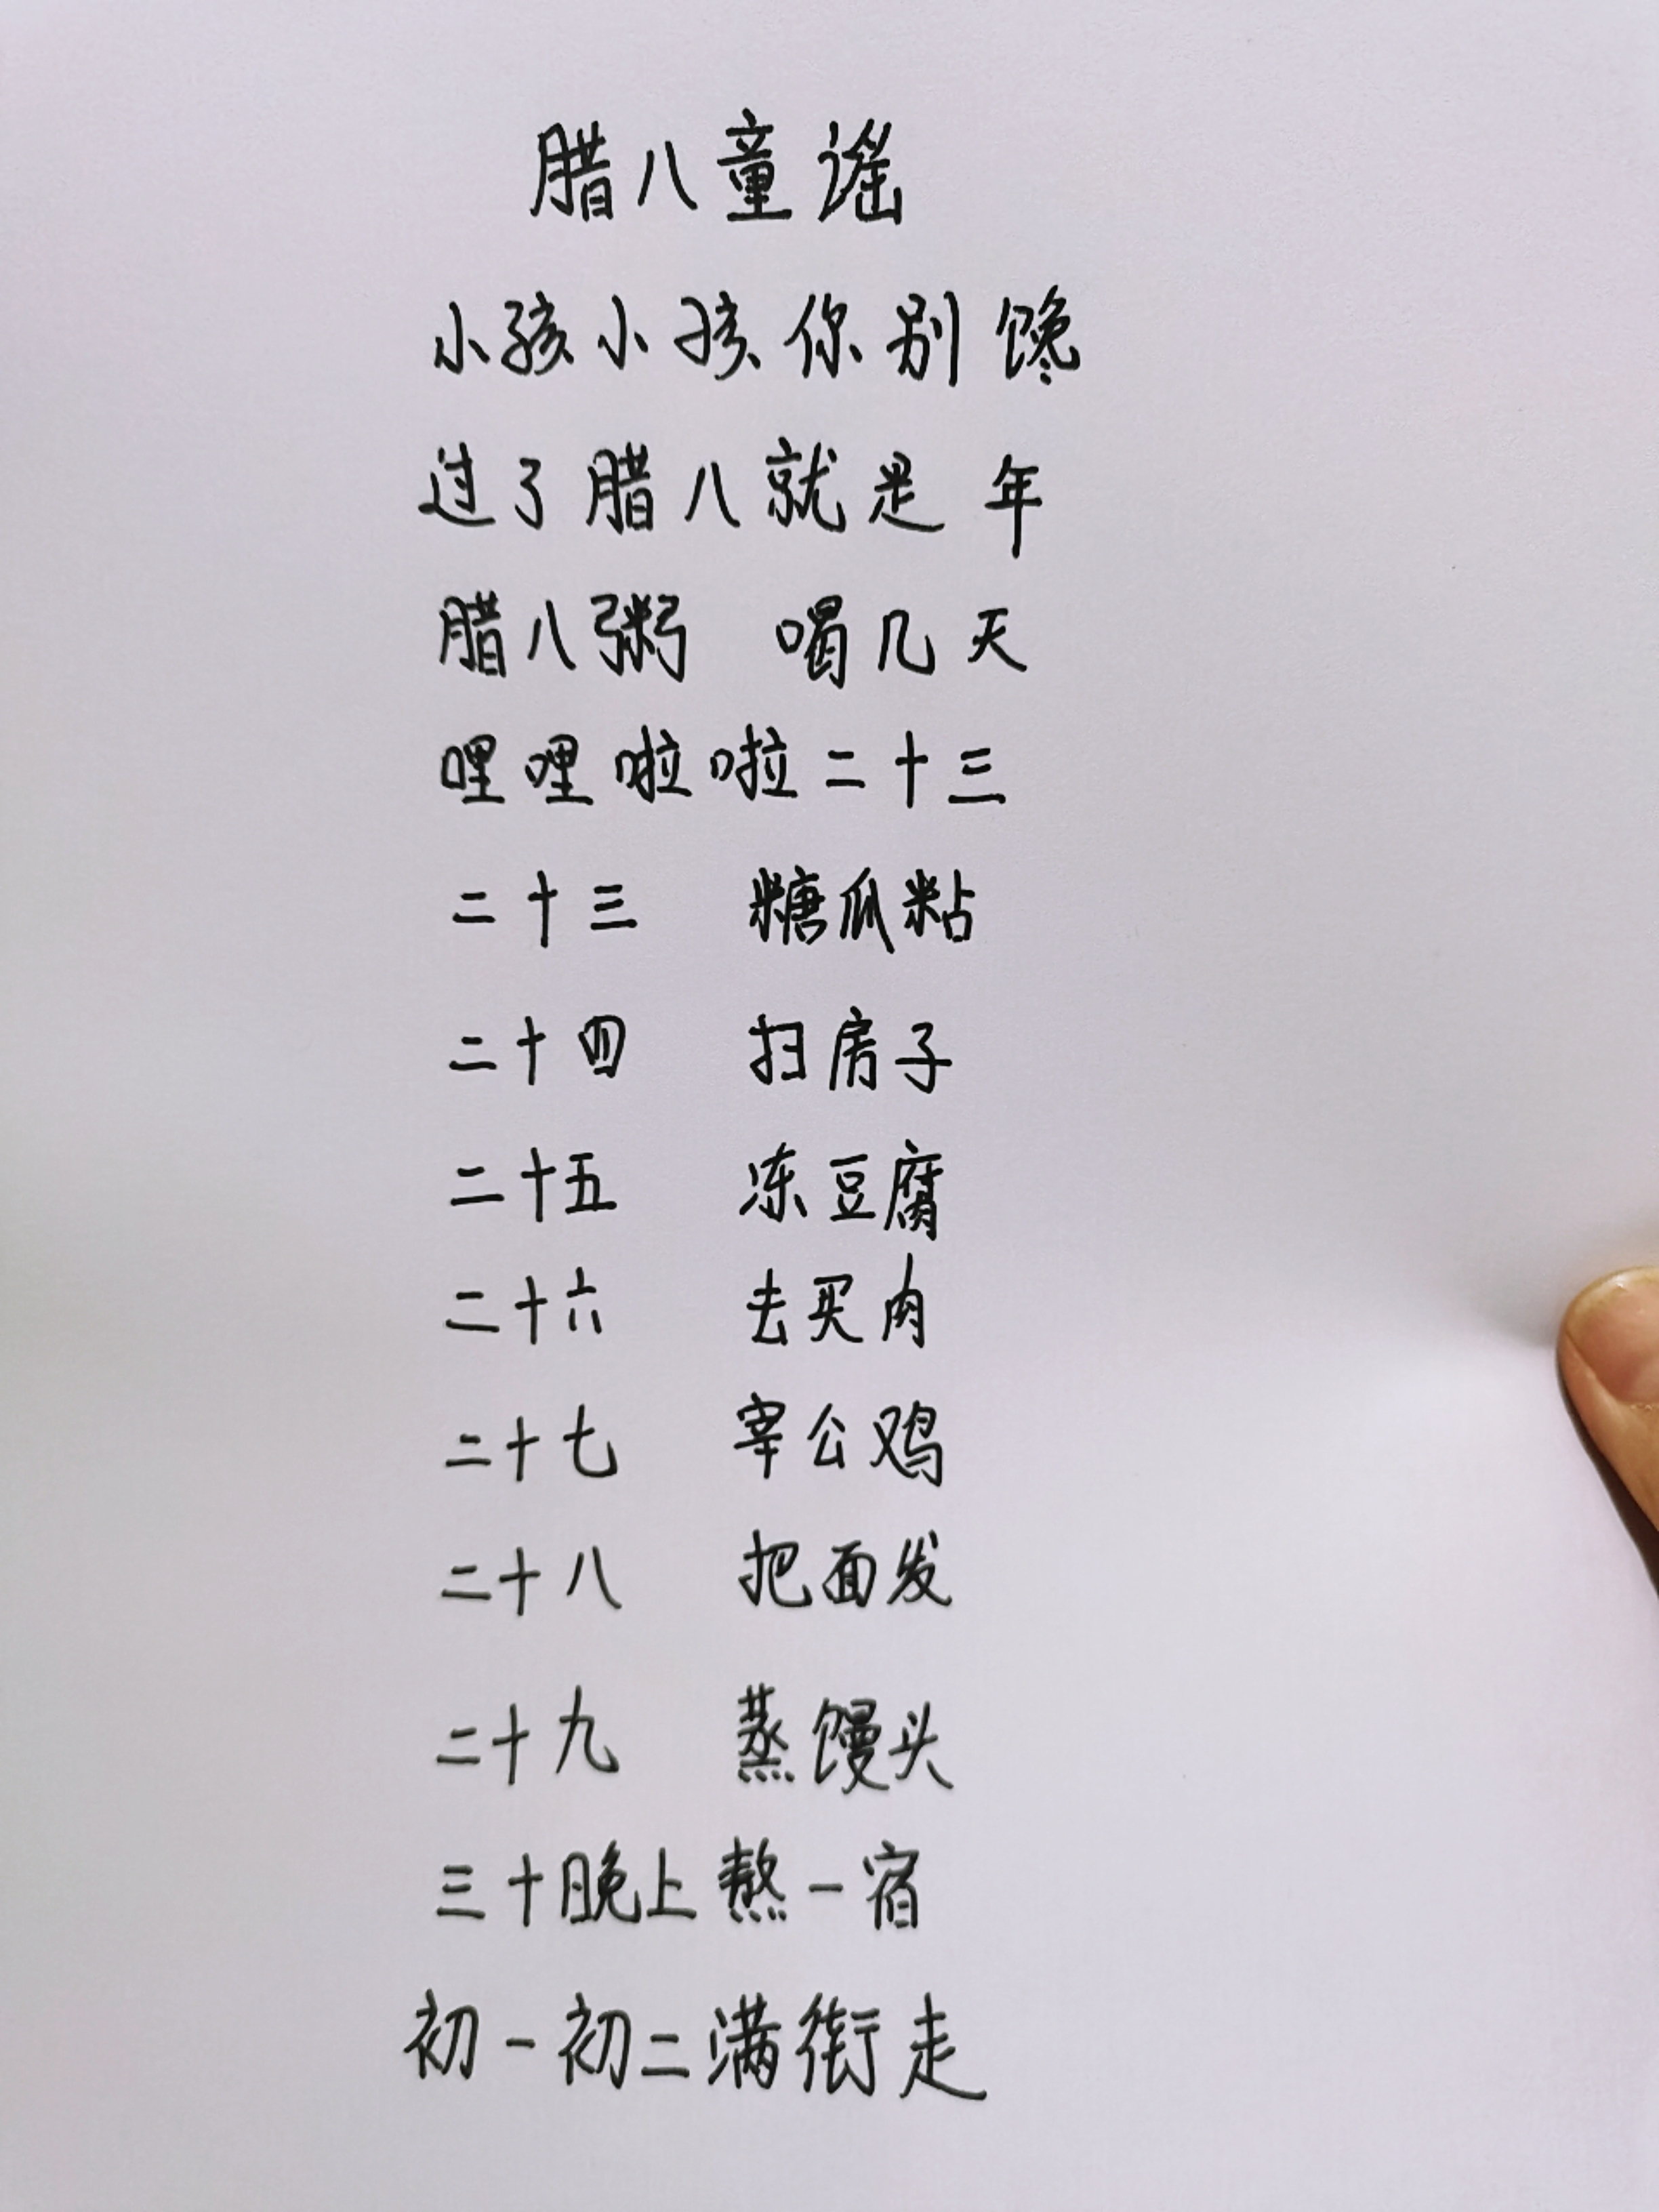 腊八童谣
小孩小孩你别馋
过了腊八就是年
腊八粥 喝几天
哩哩啦啦二十三
二十三 糖瓜粘
二十四 扫房子
二十五 冻豆腐
二十六 去买肉
二十七 宰公鸡
二十八 把面发
二十九 蒸馒头
三十晚上熬一宿
初一初二满街走